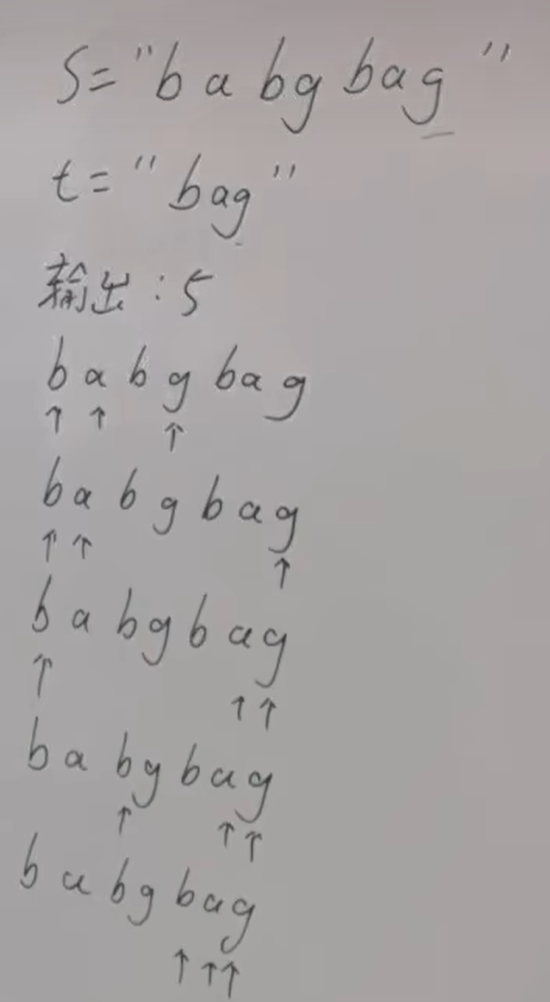 S="babgbag"
t="bag"
输出:5
babgbag
↑↑↑
babgbag
↑↑↑
babgbag
↑↑↑
babgbag
↑↑↑
babgbag
↑↑↑